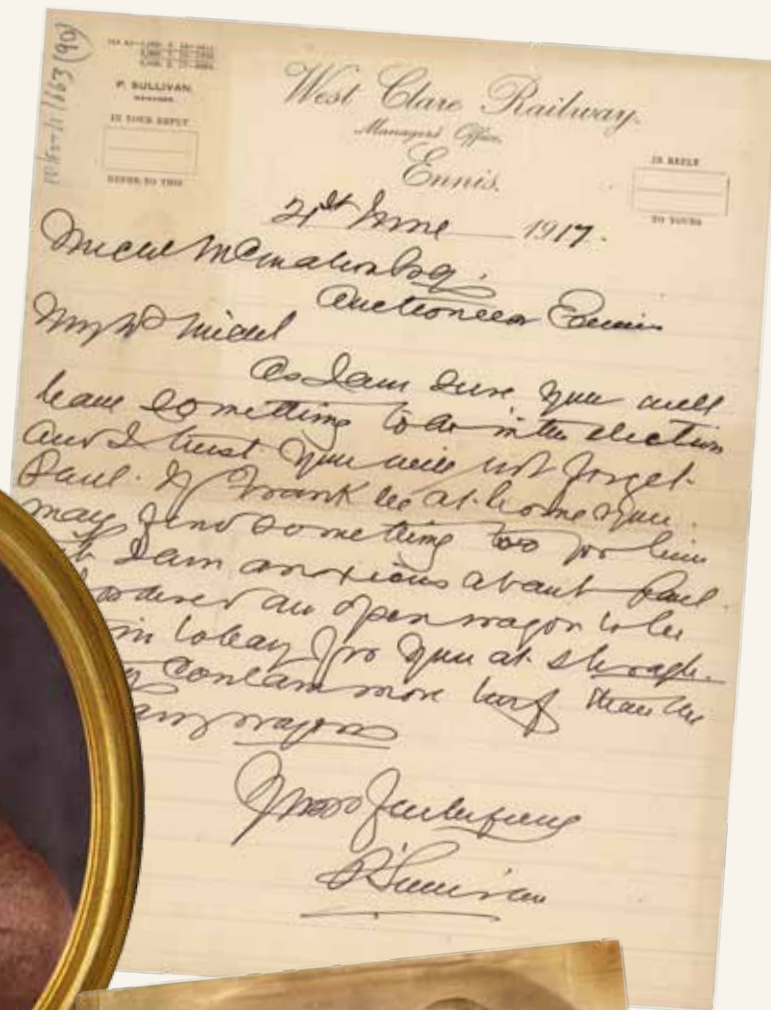 P. SULLIVAN,
MANAGER.
IN YOUR REPLY
REFER TO THIS
West Clare Railway.
Manager's Office,
Ennis.
IN REPLY
TO YOURS
21st June 1917.
Auctioneer Ennis
My Dr Michl
As I am sure you will
have something to do in the election
and I trust you will not forget
Paul. If Frank be at home you
may find something too for him
I am anxious about Paul.
ordered an open wagon to be
in today for you at
contain more turf than the
wagons
Yours faithfully
P Sullivan